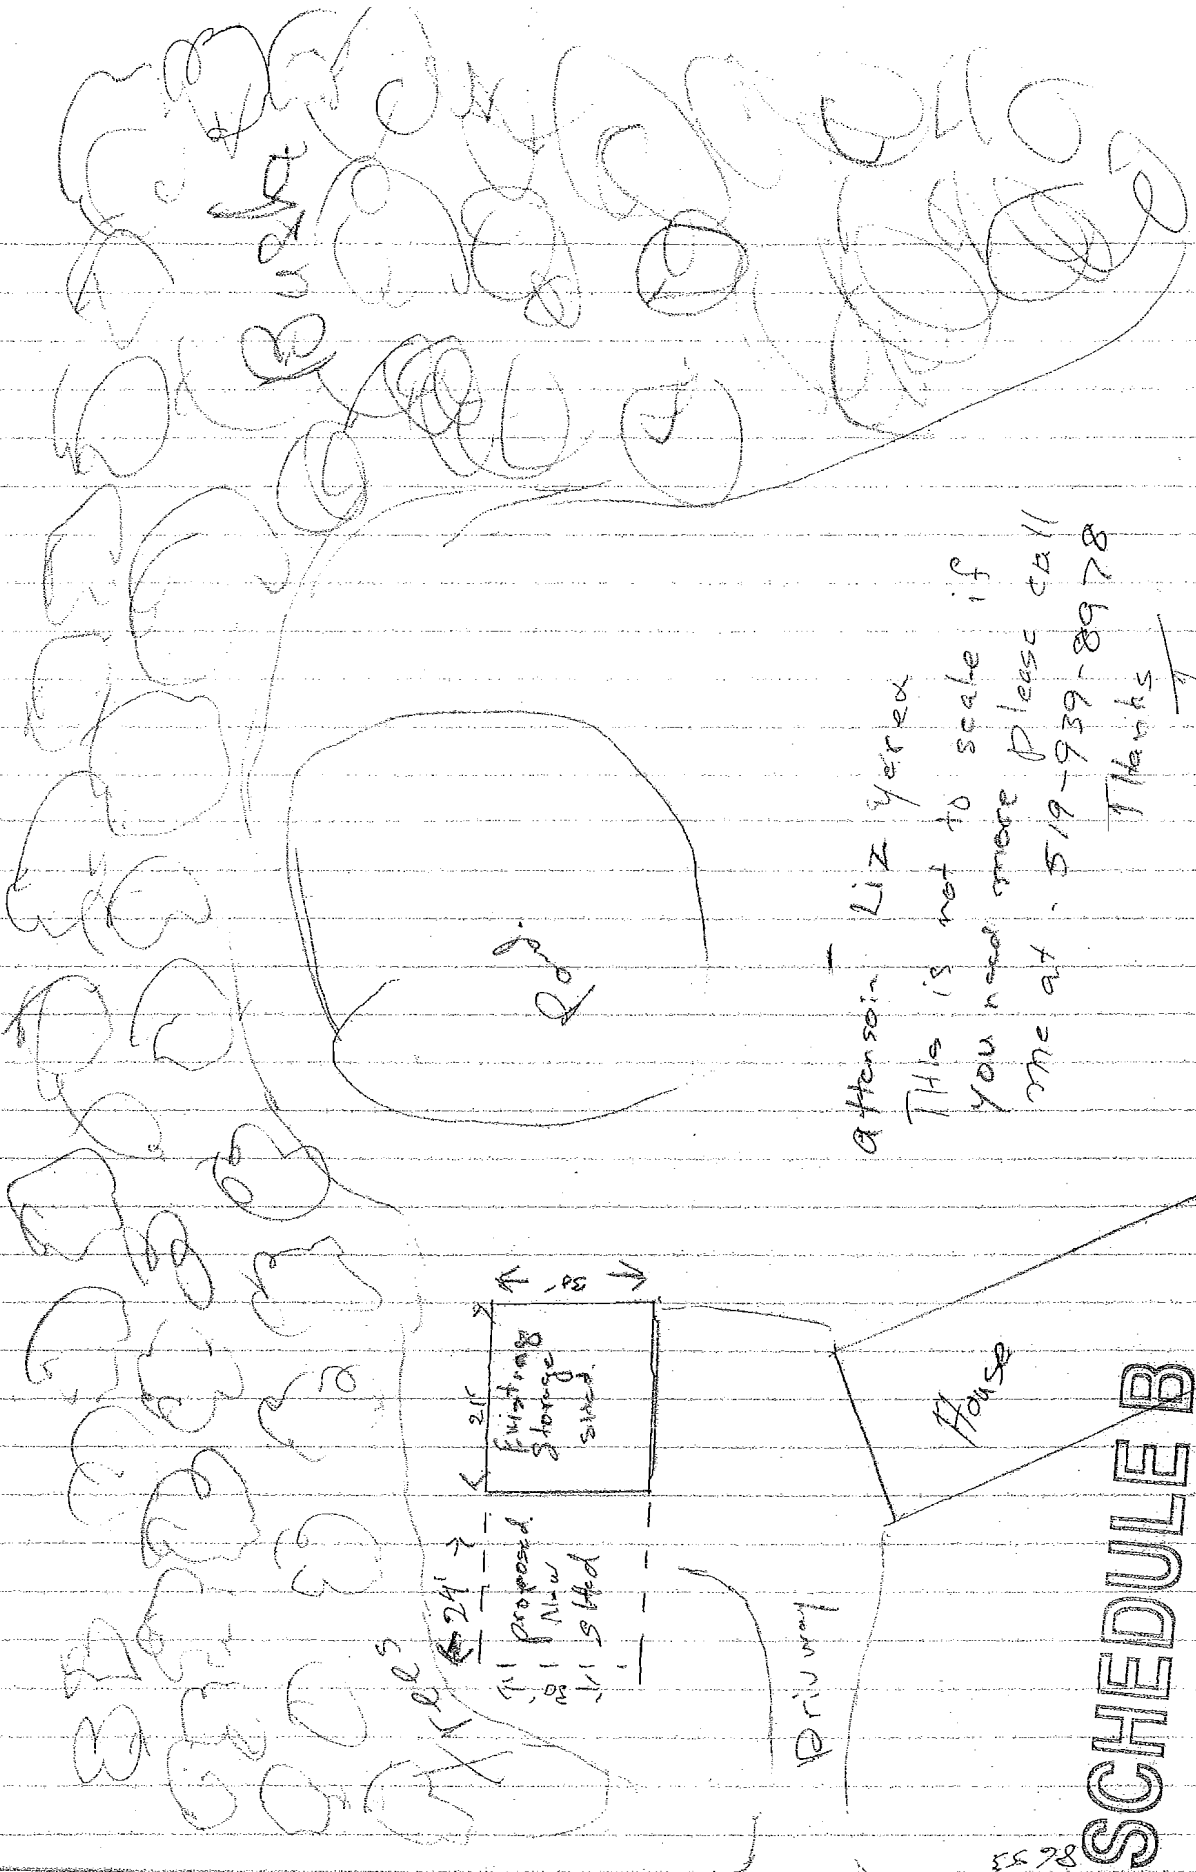 Trees
24'
proposed
New
SHed
21'
Existing
Storage
shed.
Driveway
House
attensoin - Liz Yerex
THis is not to scale if
You need more Please call
me at . 519-939-8978
THanks
SCHEDULE B